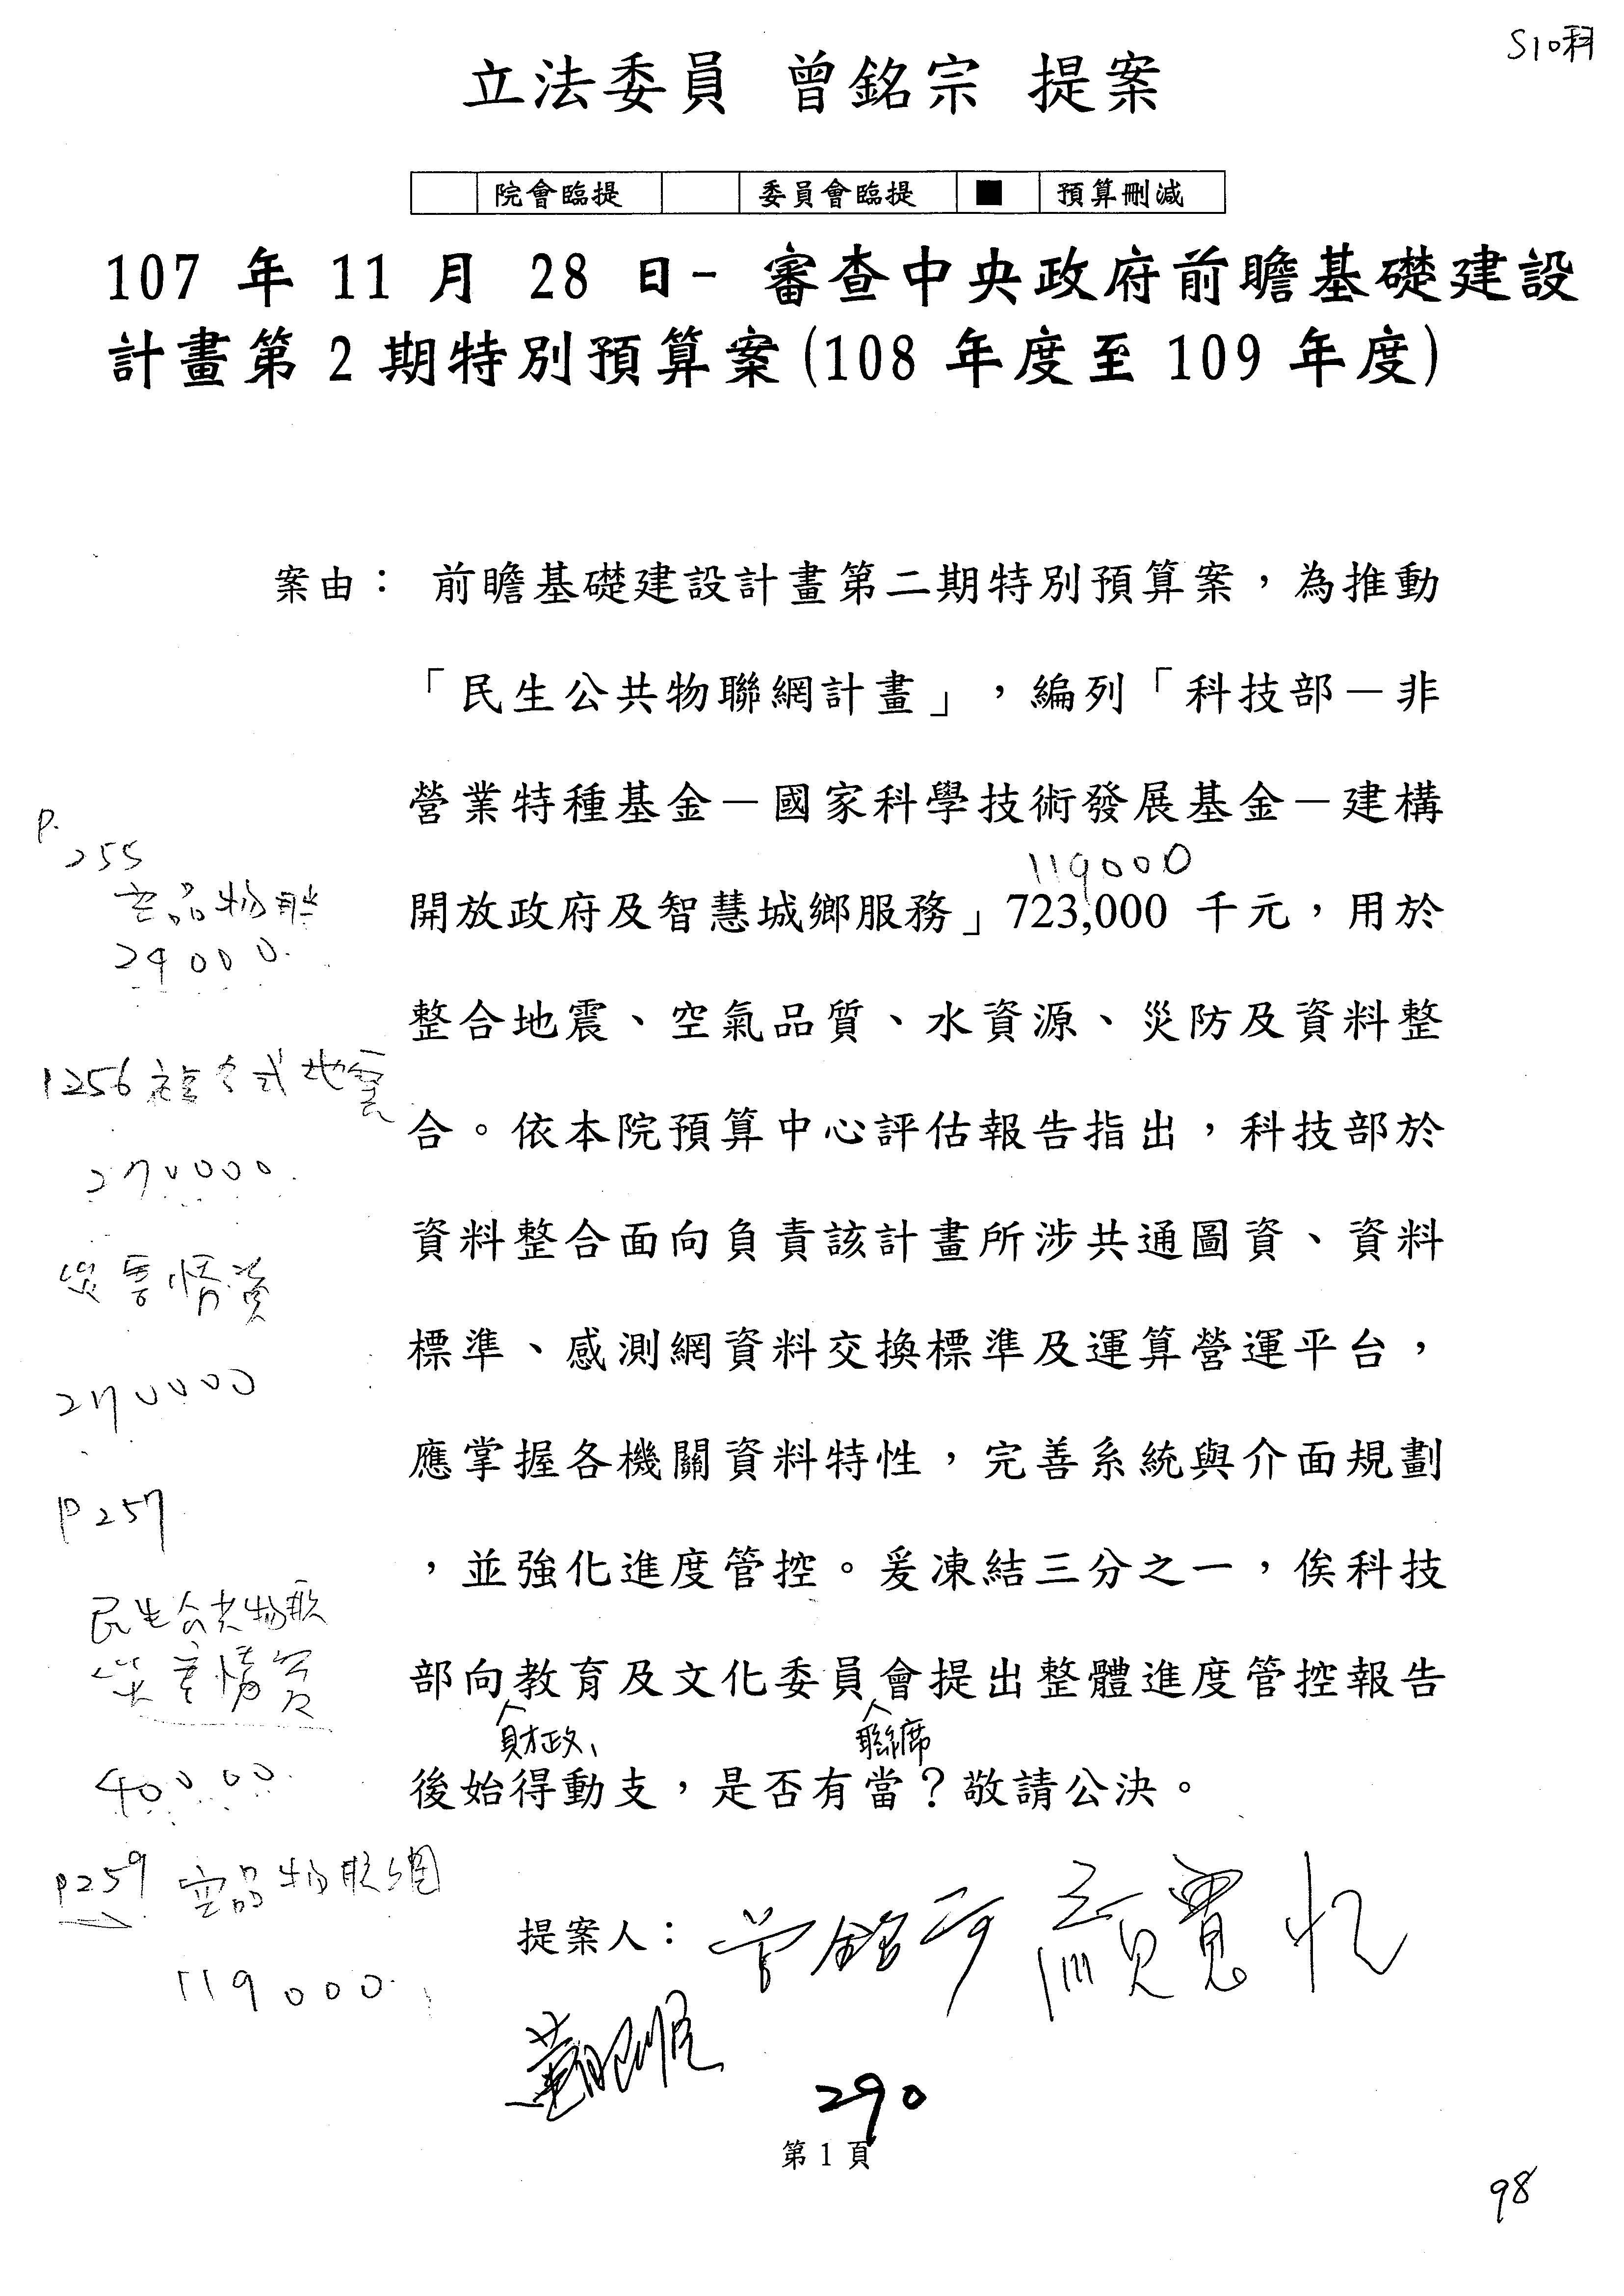 S10科
立法委員 曾銘宗 提案
院會臨提 委員會臨提 ■ 預算刪減
107 年 11 月 28 日- 審查中央政府前瞻基礎建設
計畫第 2 期特別預算案(108 年度至 109 年度)
案由： 前瞻基礎建設計畫第二期特別預算案，為推動
「民生公共物聯網計畫」，編列「科技部－非
營業特種基金－國家科學技術發展基金－建構
119000
開放政府及智慧城鄉服務」723,000 千元，用於
整合地震、空氣品質、水資源、災防及資料整
合。依本院預算中心評估報告指出，科技部於
資料整合面向負責該計畫所涉共通圖資、資料
標準、感測網資料交換標準及運算營運平台，
應掌握各機關資料特性，完善系統與介面規劃
，並強化進度管控。爰凍結三分之一，俟科技
部向教育及文化委員會提出整體進度管控報告
財政、 聯席
後始得動支，是否有當？敬請公決。
P.
255
空品物聯
P256 複合式地震
270000
災害情資
270000
P257
民生公共物聯
災害情資
40000
P259 空品物聯網
119000
提案人： 曾銘宗 顏寬恒
290
第 1 頁
98